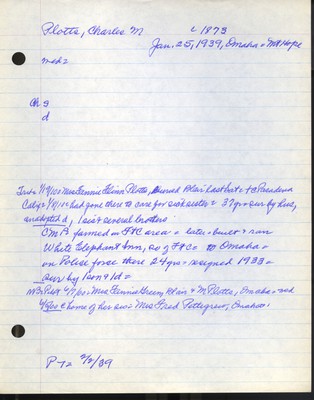 Plotts, Charles M c 1873
Jan. 25, 1939, Omaha = Mt Hope
md =
Ch s
d
Trib = 1/19/10 = Mrs Fannie Plotts, buried Blair last Sat = FC Pasadena
Calif = 1/11/10 = had gone there to care for sick sister = 37 yr = sur by hus,
adopted d, 1 sis & several brothers
C M P farmed in FtC area = later = built & ran
White Elephant Inn, so of FtC = to Omaha =
on Police force there 24 yrs = resigned 1933 =
sur by 1 son & 1 d =
Mrs Fannie Green, Blair & M Plotts, Omaha = md
@ home of her sis = Mrs Fred Pettegrew, Omaha
P-T = 2/2/39